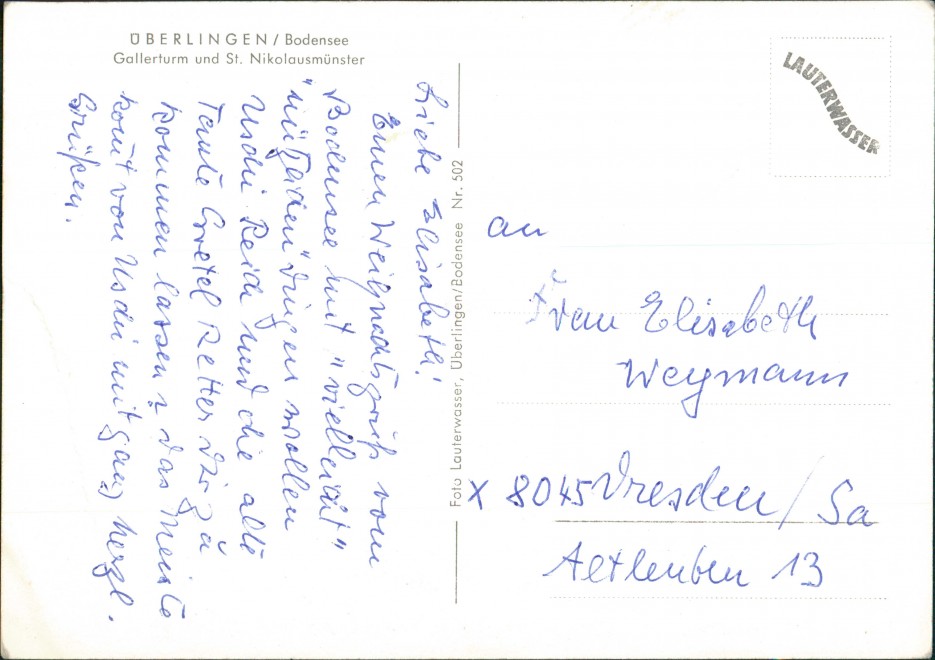 ÜBERLINGEN / Bodensee
Gallerturm und St. Nikolausmünster
Liebe Elisabeth!
Einen Weihnachtsgruß vom
Bodensee mit "vielleicht"
wollen
Uschi und die alte
Tante Gretel Retter
kommen lassen das meiste
kommt von Uschi mit ganz herzl.
Grüßen.
Foto Lauterwasser, Überlingen/Bodensee Nr. 502
LAUTERWASSER
an
Frau Elisabeth
Weymann
X 8045 Dresden / Sa
Altleuben 13